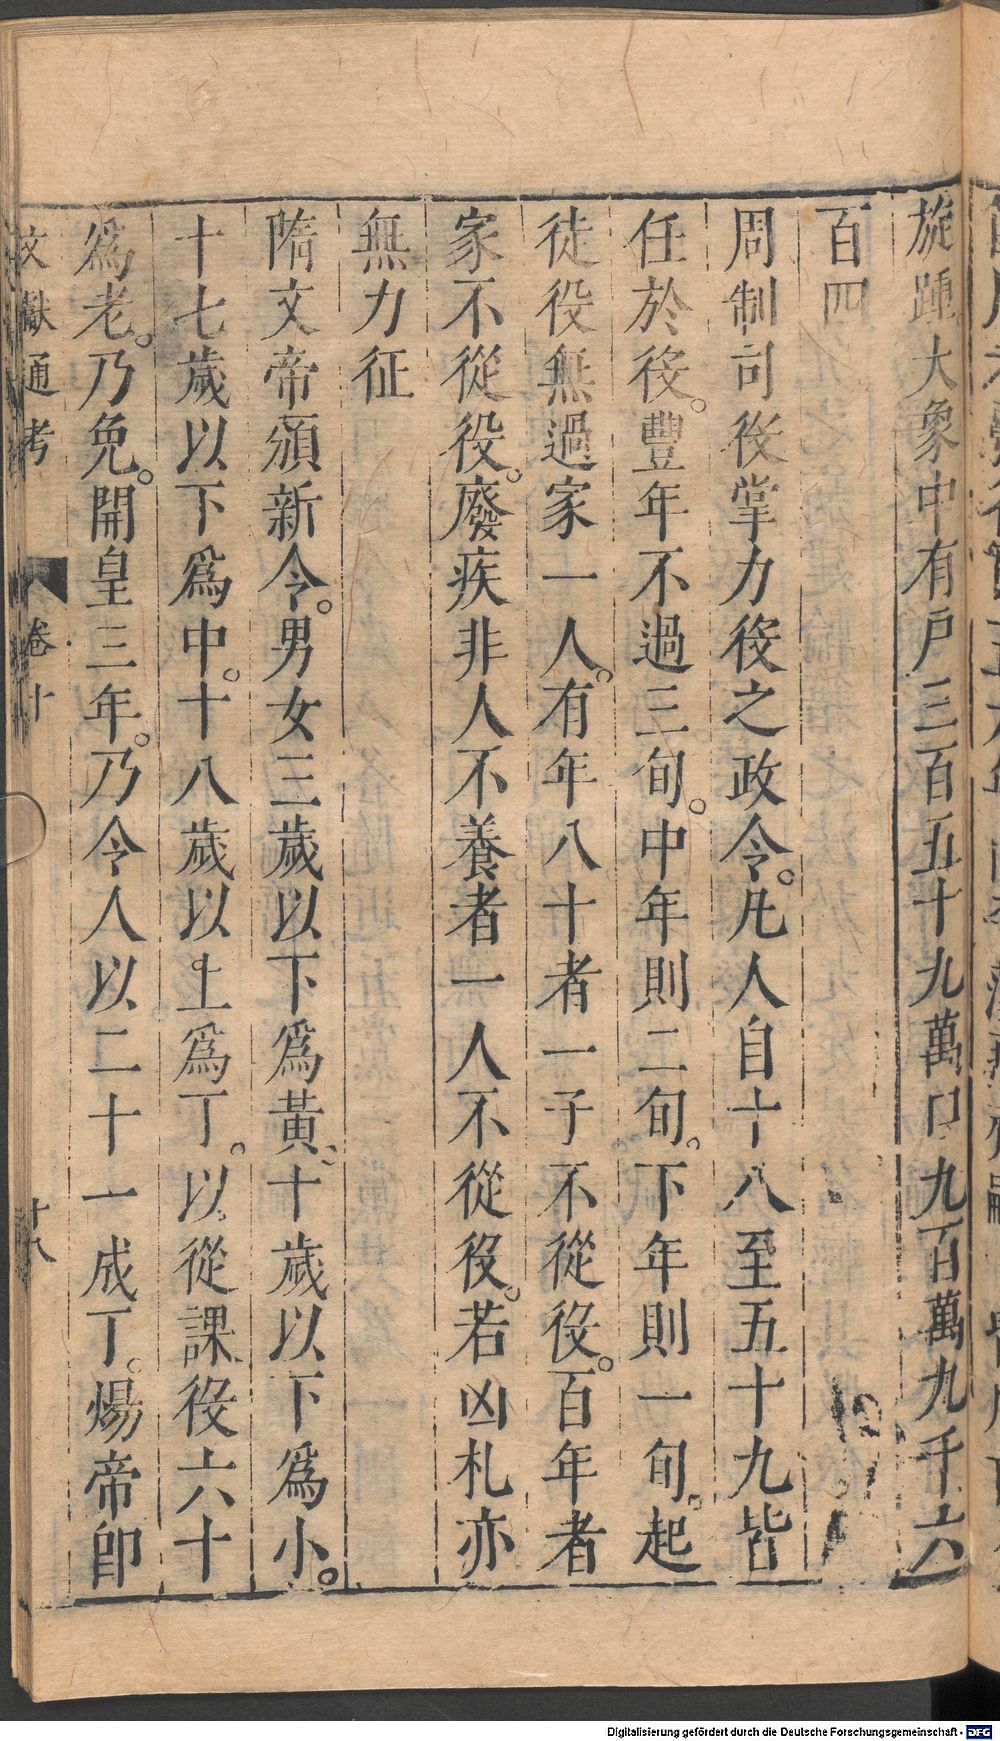 旋踵大象中有戶三百五十九萬口九百萬九千六
百四
周制司役掌力役之政令。凡人自十八至五十九皆
任於役。豐年不過三旬。中年則二旬。下年則一旬。起
徒役無過家一人。有年八十者一子不從役。百年者
家不從役。廢疾非人不養者一人不從役。若凶札亦
無力征
隋文帝頒新令。男女三歲以下爲黃、十歲以下爲小。
十七歲以下爲中。十八歲以上爲丁。以從課役六十
爲老。乃免。開皇三年。乃令人以二十一成丁。煬帝即
文獻通考 卷十 十八
Digitalisierung gefördert durch die Deutsche Forschungsgemeinschaft - DFG